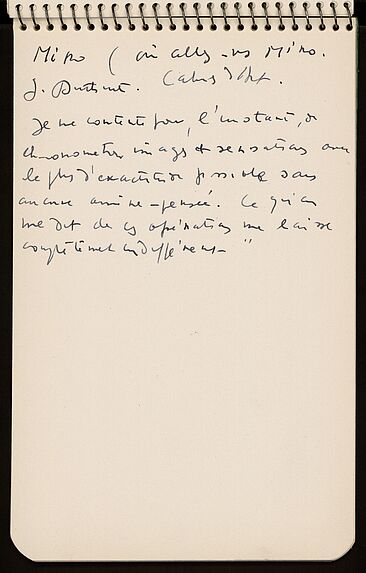 Miro ( où allez-vs Miro.
J. Duthuit. Cahiers d'Art.
Je me contente pour l'instant, de
chronométrer images et sensations avec
le plus d'exactitude possible sans
aucune arrière-pensée. Ce qu'on
me dit de ces opérations me laisse
complètement indifférent - "